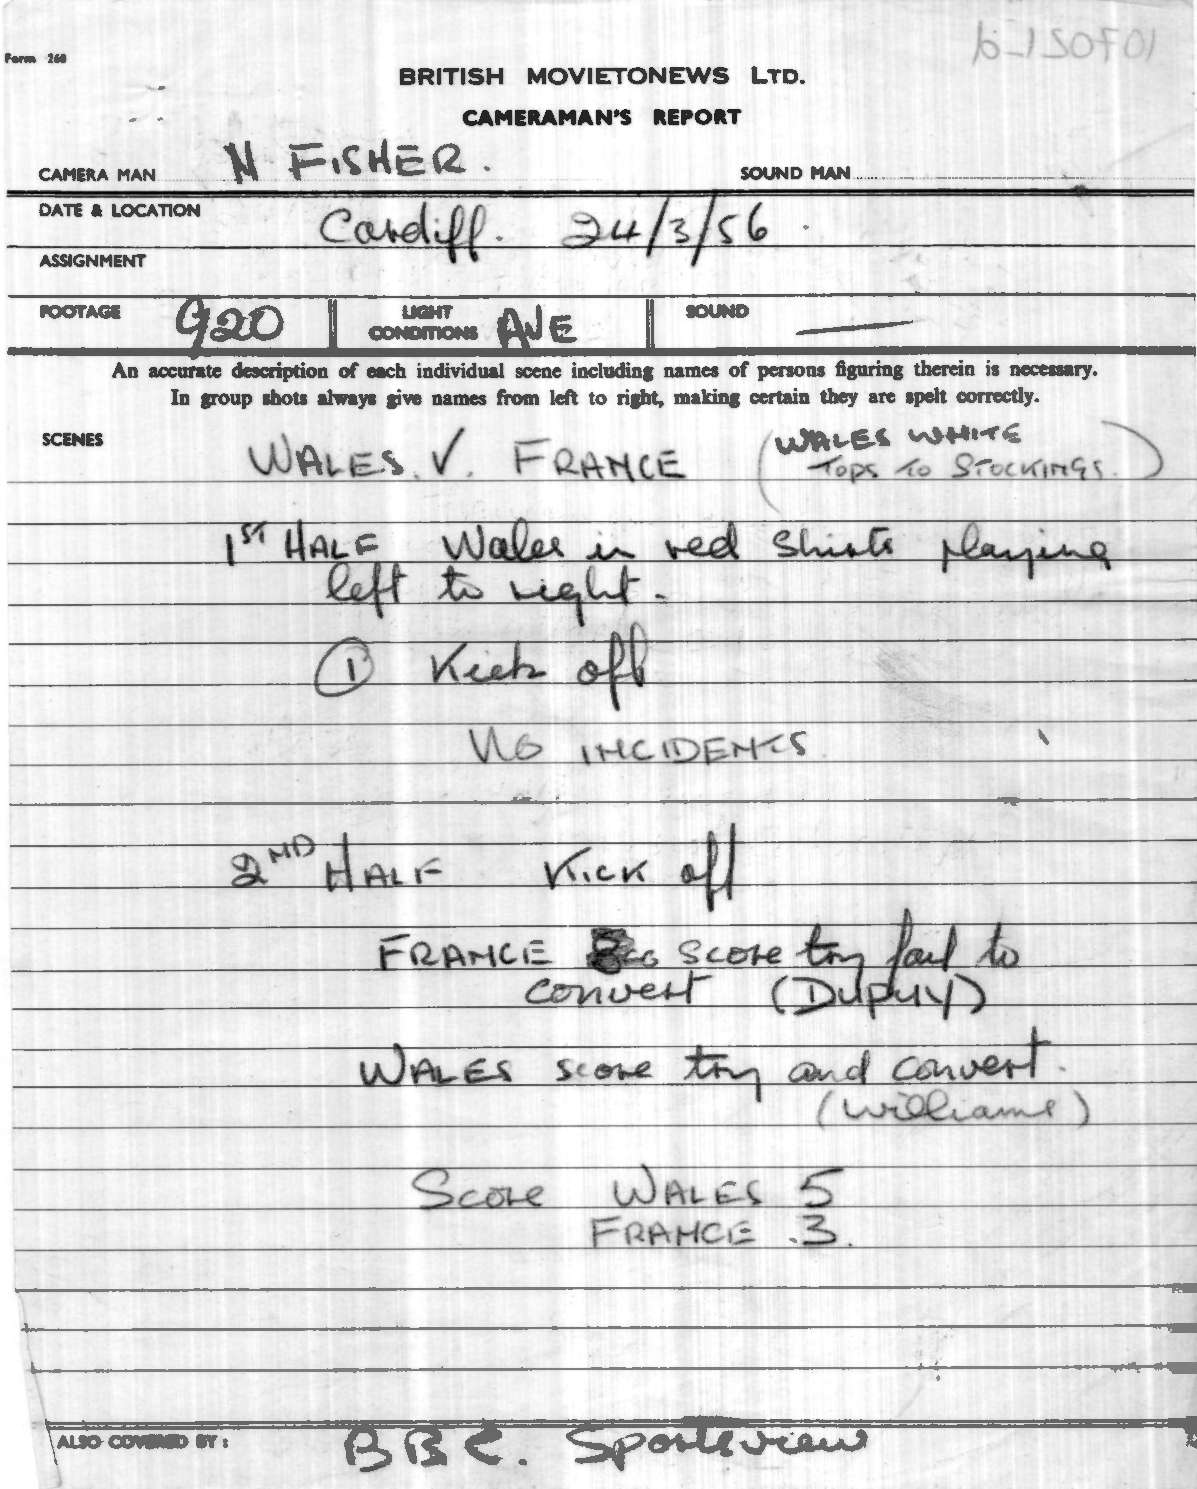 Form 260
BRITISH MOVIETONEWS LTD.
CAMERAMAN'S REPORT
CAMERA MAN N FISHER. SOUND MAN
DATE & LOCATION Cardiff. 24/3/56
ASSIGNMENT
FOOTAGE 920 LIGHT CONDITIONS AVE SOUND —
An accurate description of each individual scene including names of persons figuring therein is necessary.
In group shots always give names from left to right, making certain they are spelt correctly.
SCENES WALES. V. FRANCE (WALES WHITE
TOPS TO STOCKINGS.)
1ST HALF Wales in red shirts playing
left to right.
① Kick off
NO INCIDENTS
2ND HALF KICK off
FRANCE score try fail to
convert (DUPUY)
WALES score try and convert.
(Williams)
Score WALES 5
FRANCE .3.
ALSO COVERED BY: BBC. Sportsview